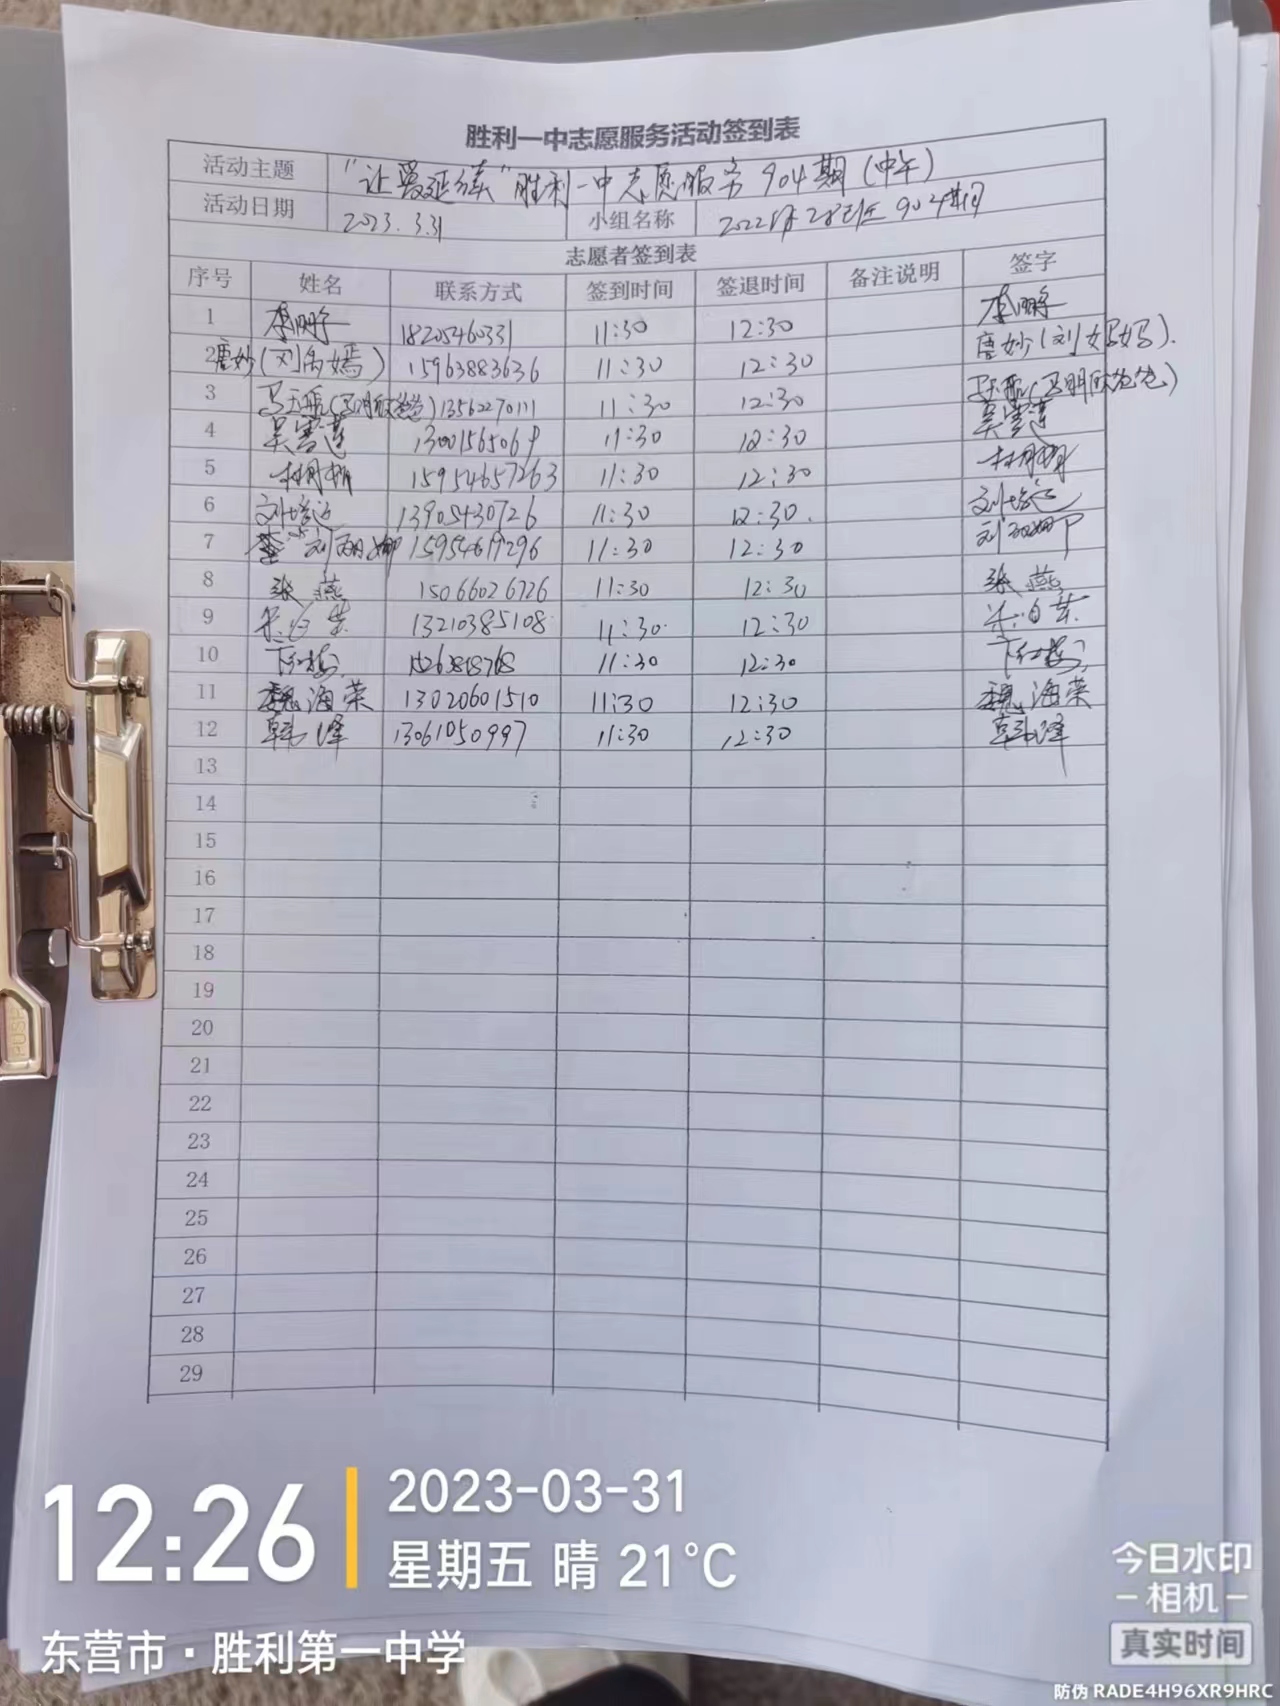 胜利一中志愿服务活动签到表
活动主题 "让爱延续"胜利一中志愿服务904期(中午)
活动日期 2023.3.31 小组名称 2022级28班 904期
志愿者签到表
序号 姓名 联系方式 签到时间 签退时间 备注说明 签字
1 18205460331 11:30 12:30
2 唐妙(刘禹嫣) 15963883636 11:30 12:30 唐妙(刘 妈妈).
3 11:30 12:30
4 吴雪莲 13001565069 11:30 12:30 吴雪莲
5 15954657263 11:30 12:30
6 13905430726 11:30 12:30.
7 刘丽娜 11:30 12:30 刘丽娜
8 张燕 15066026726 11:30 12:30 张燕
9 13210385108 11:30 12:30
10 11:30 12:30
11 魏海荣 13020601510 11:30 12:30 魏海荣
12 韩峰 13061050997 11:30 12:30 韩峰
13
14
15
16
17
18
19
20
21
22
23
24
25
26
27
28
29
PUSH
12:26
2023-03-31
星期五 晴 21°C
东营市·胜利第一中学
今日水印
-相机-
真实时间
防伪 RADE4H96XR9HRC